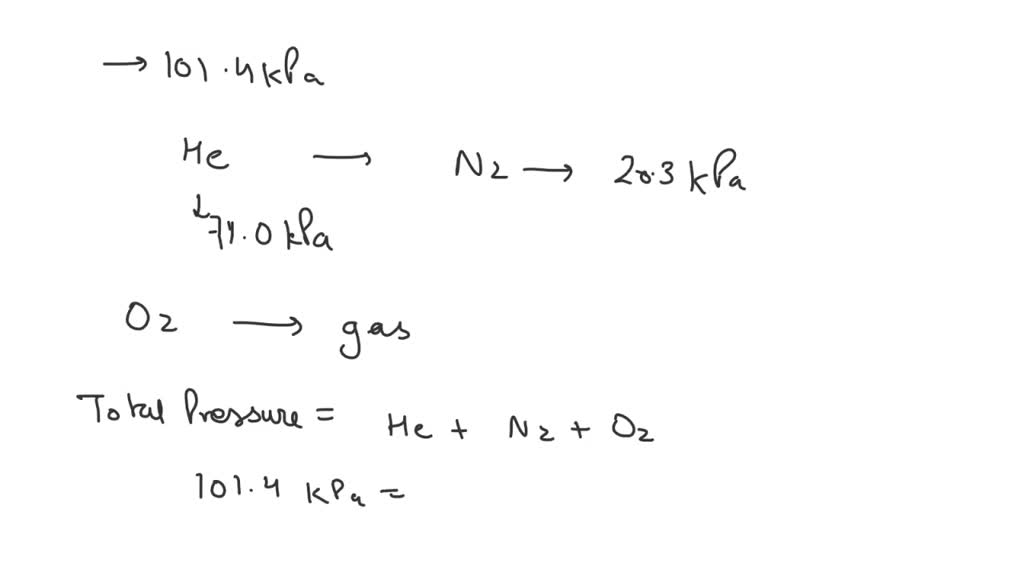 → 101.4 kPa
He → N2 → 20.3 kPa
↓ 74.0 kPa
O2 → gas
Total Pressure = He + N2 + O2
101.4 kPa =